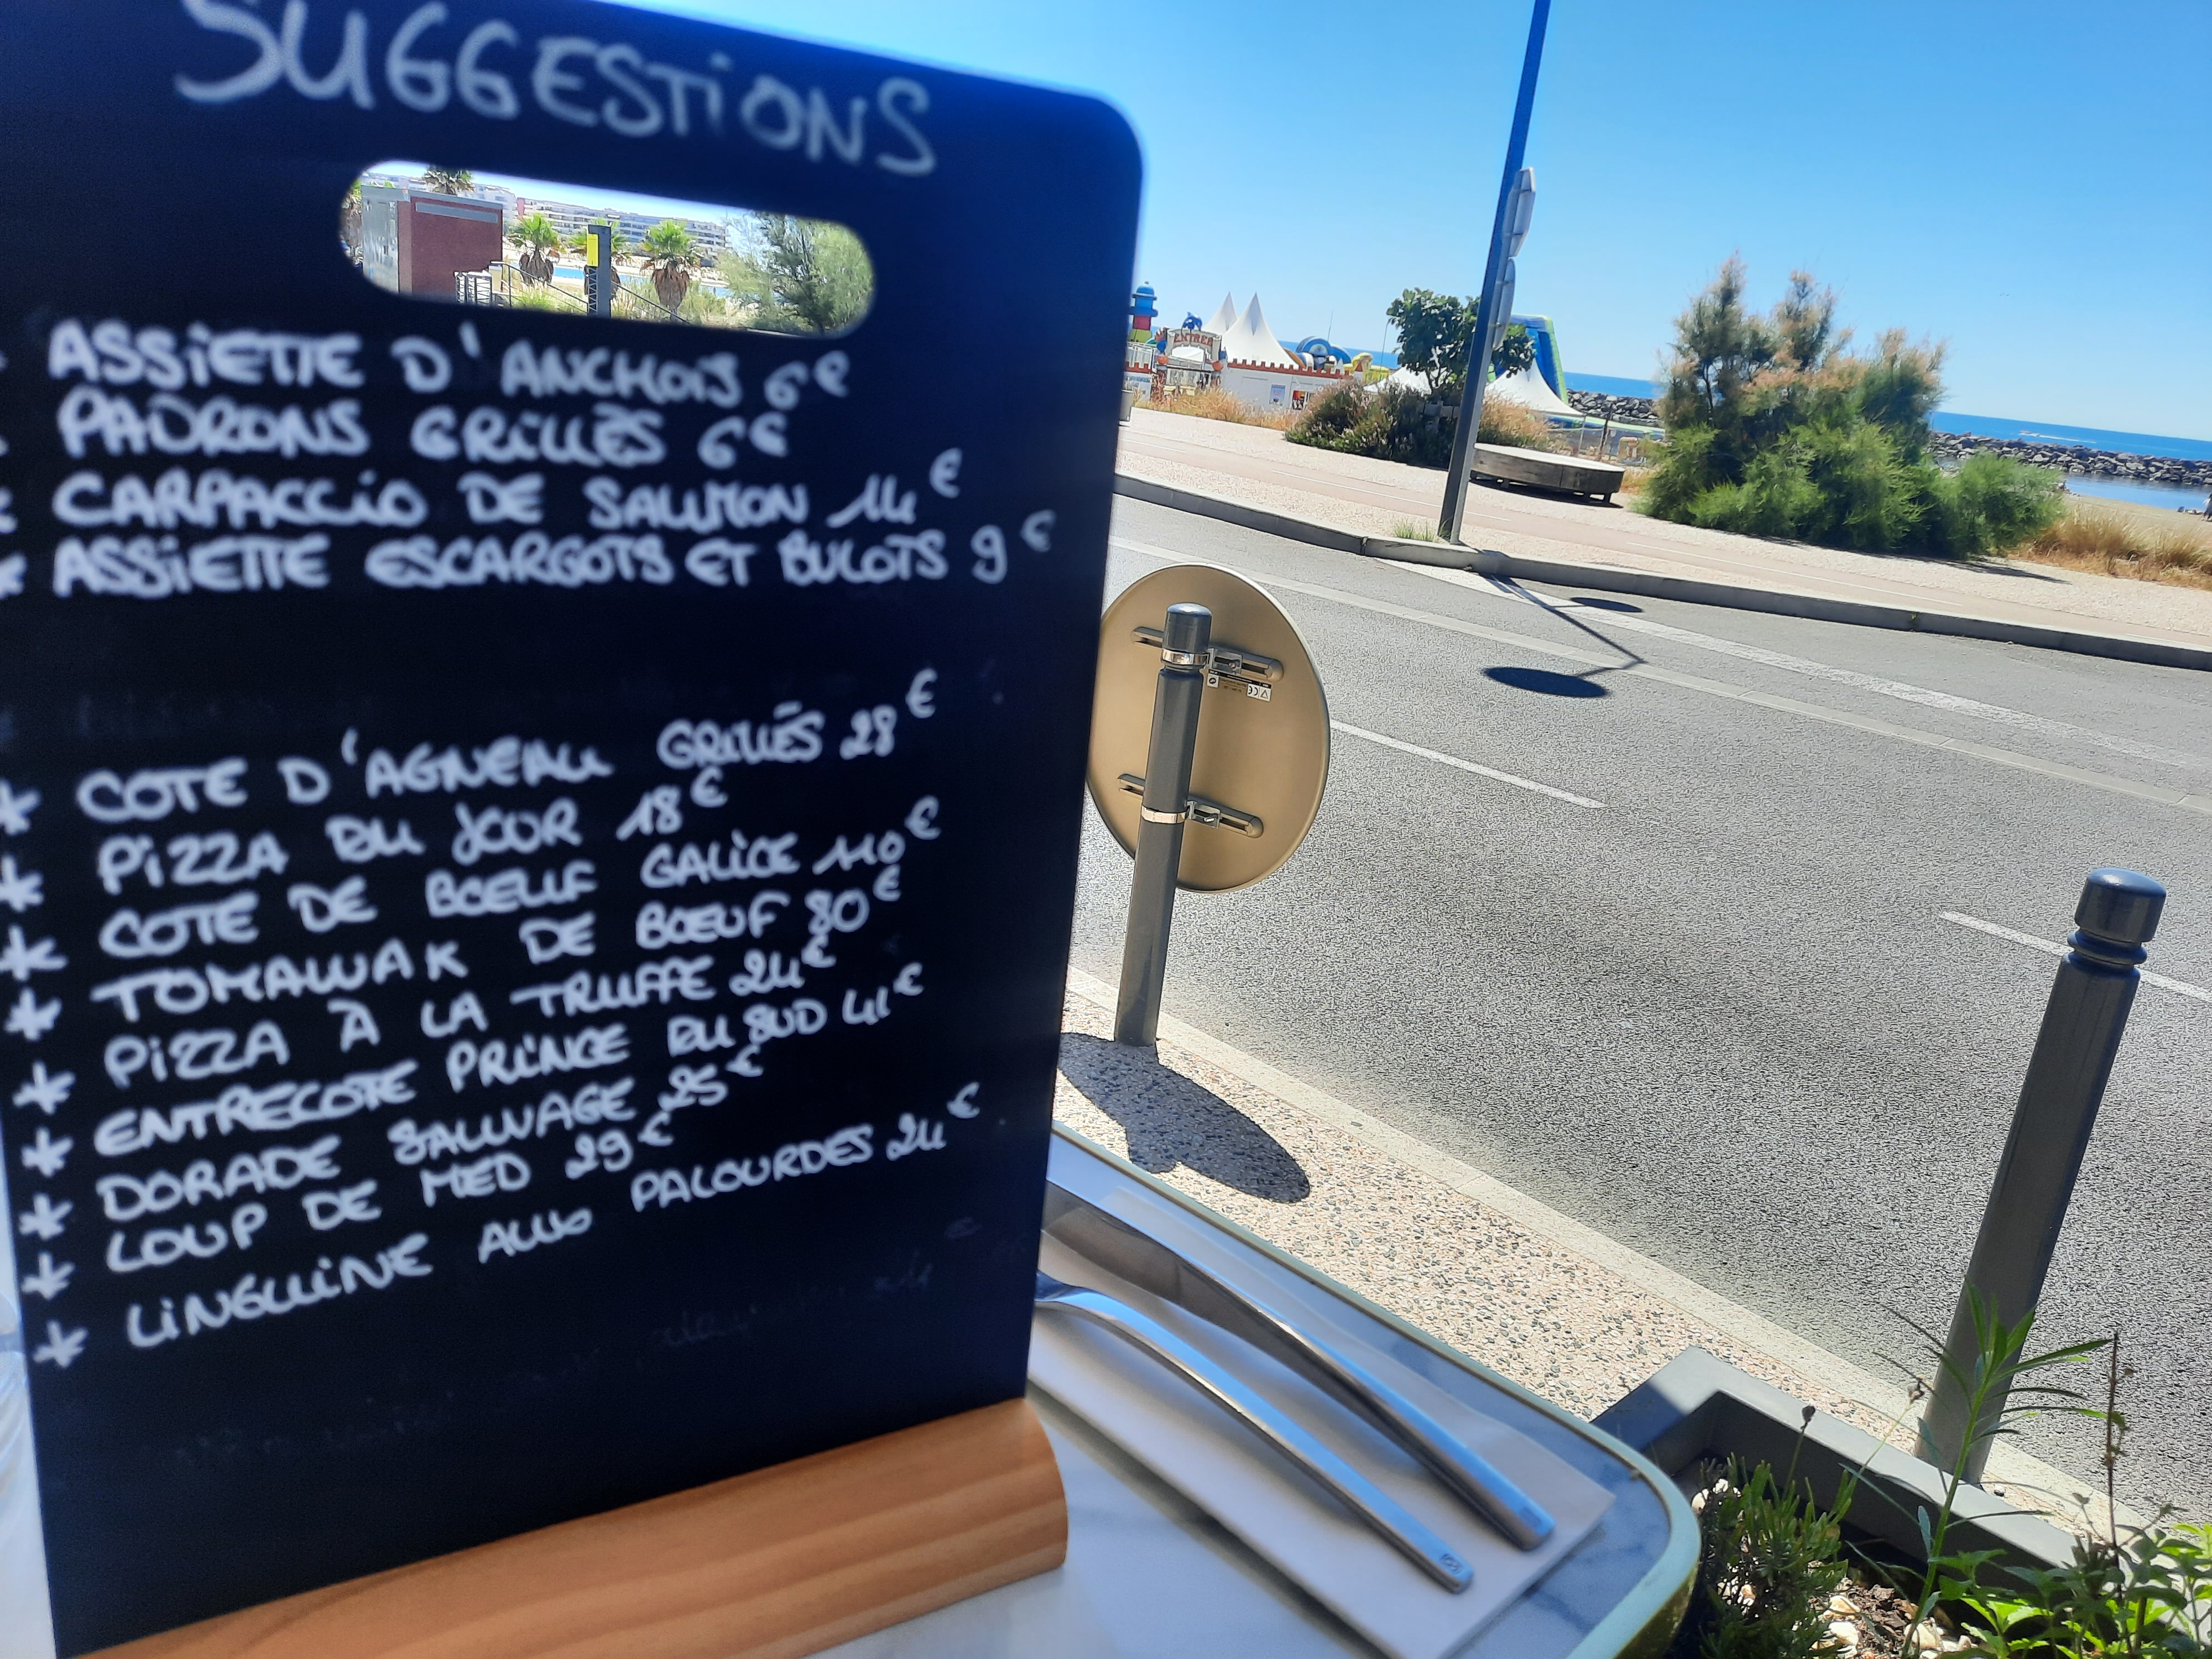 SUGGESTIONS
* ASSIETTE D'ANCHOIS 6€
* PADRONS GRILLÉS 6€
* CARPACCIO DE SAUMON 14€
* ASSIETTE ESCARGOTS ET BULOTS 9€
* COTE D'AGNEAU GRILLÉS 28€
* PIZZA DU JOUR 18€
* COTE DE BOEUF GALICE 110€
* TOMAWAK DE BŒUF 80€
* PIZZA À LA TRUFFE 24€
* ENTRECOTE PRINCE DU SUD 41€
* DORADE SAUVAGE 25€
* LOUP DE MED 29€
* LINGUINE AUX PALOURDES 24€
ENTREE